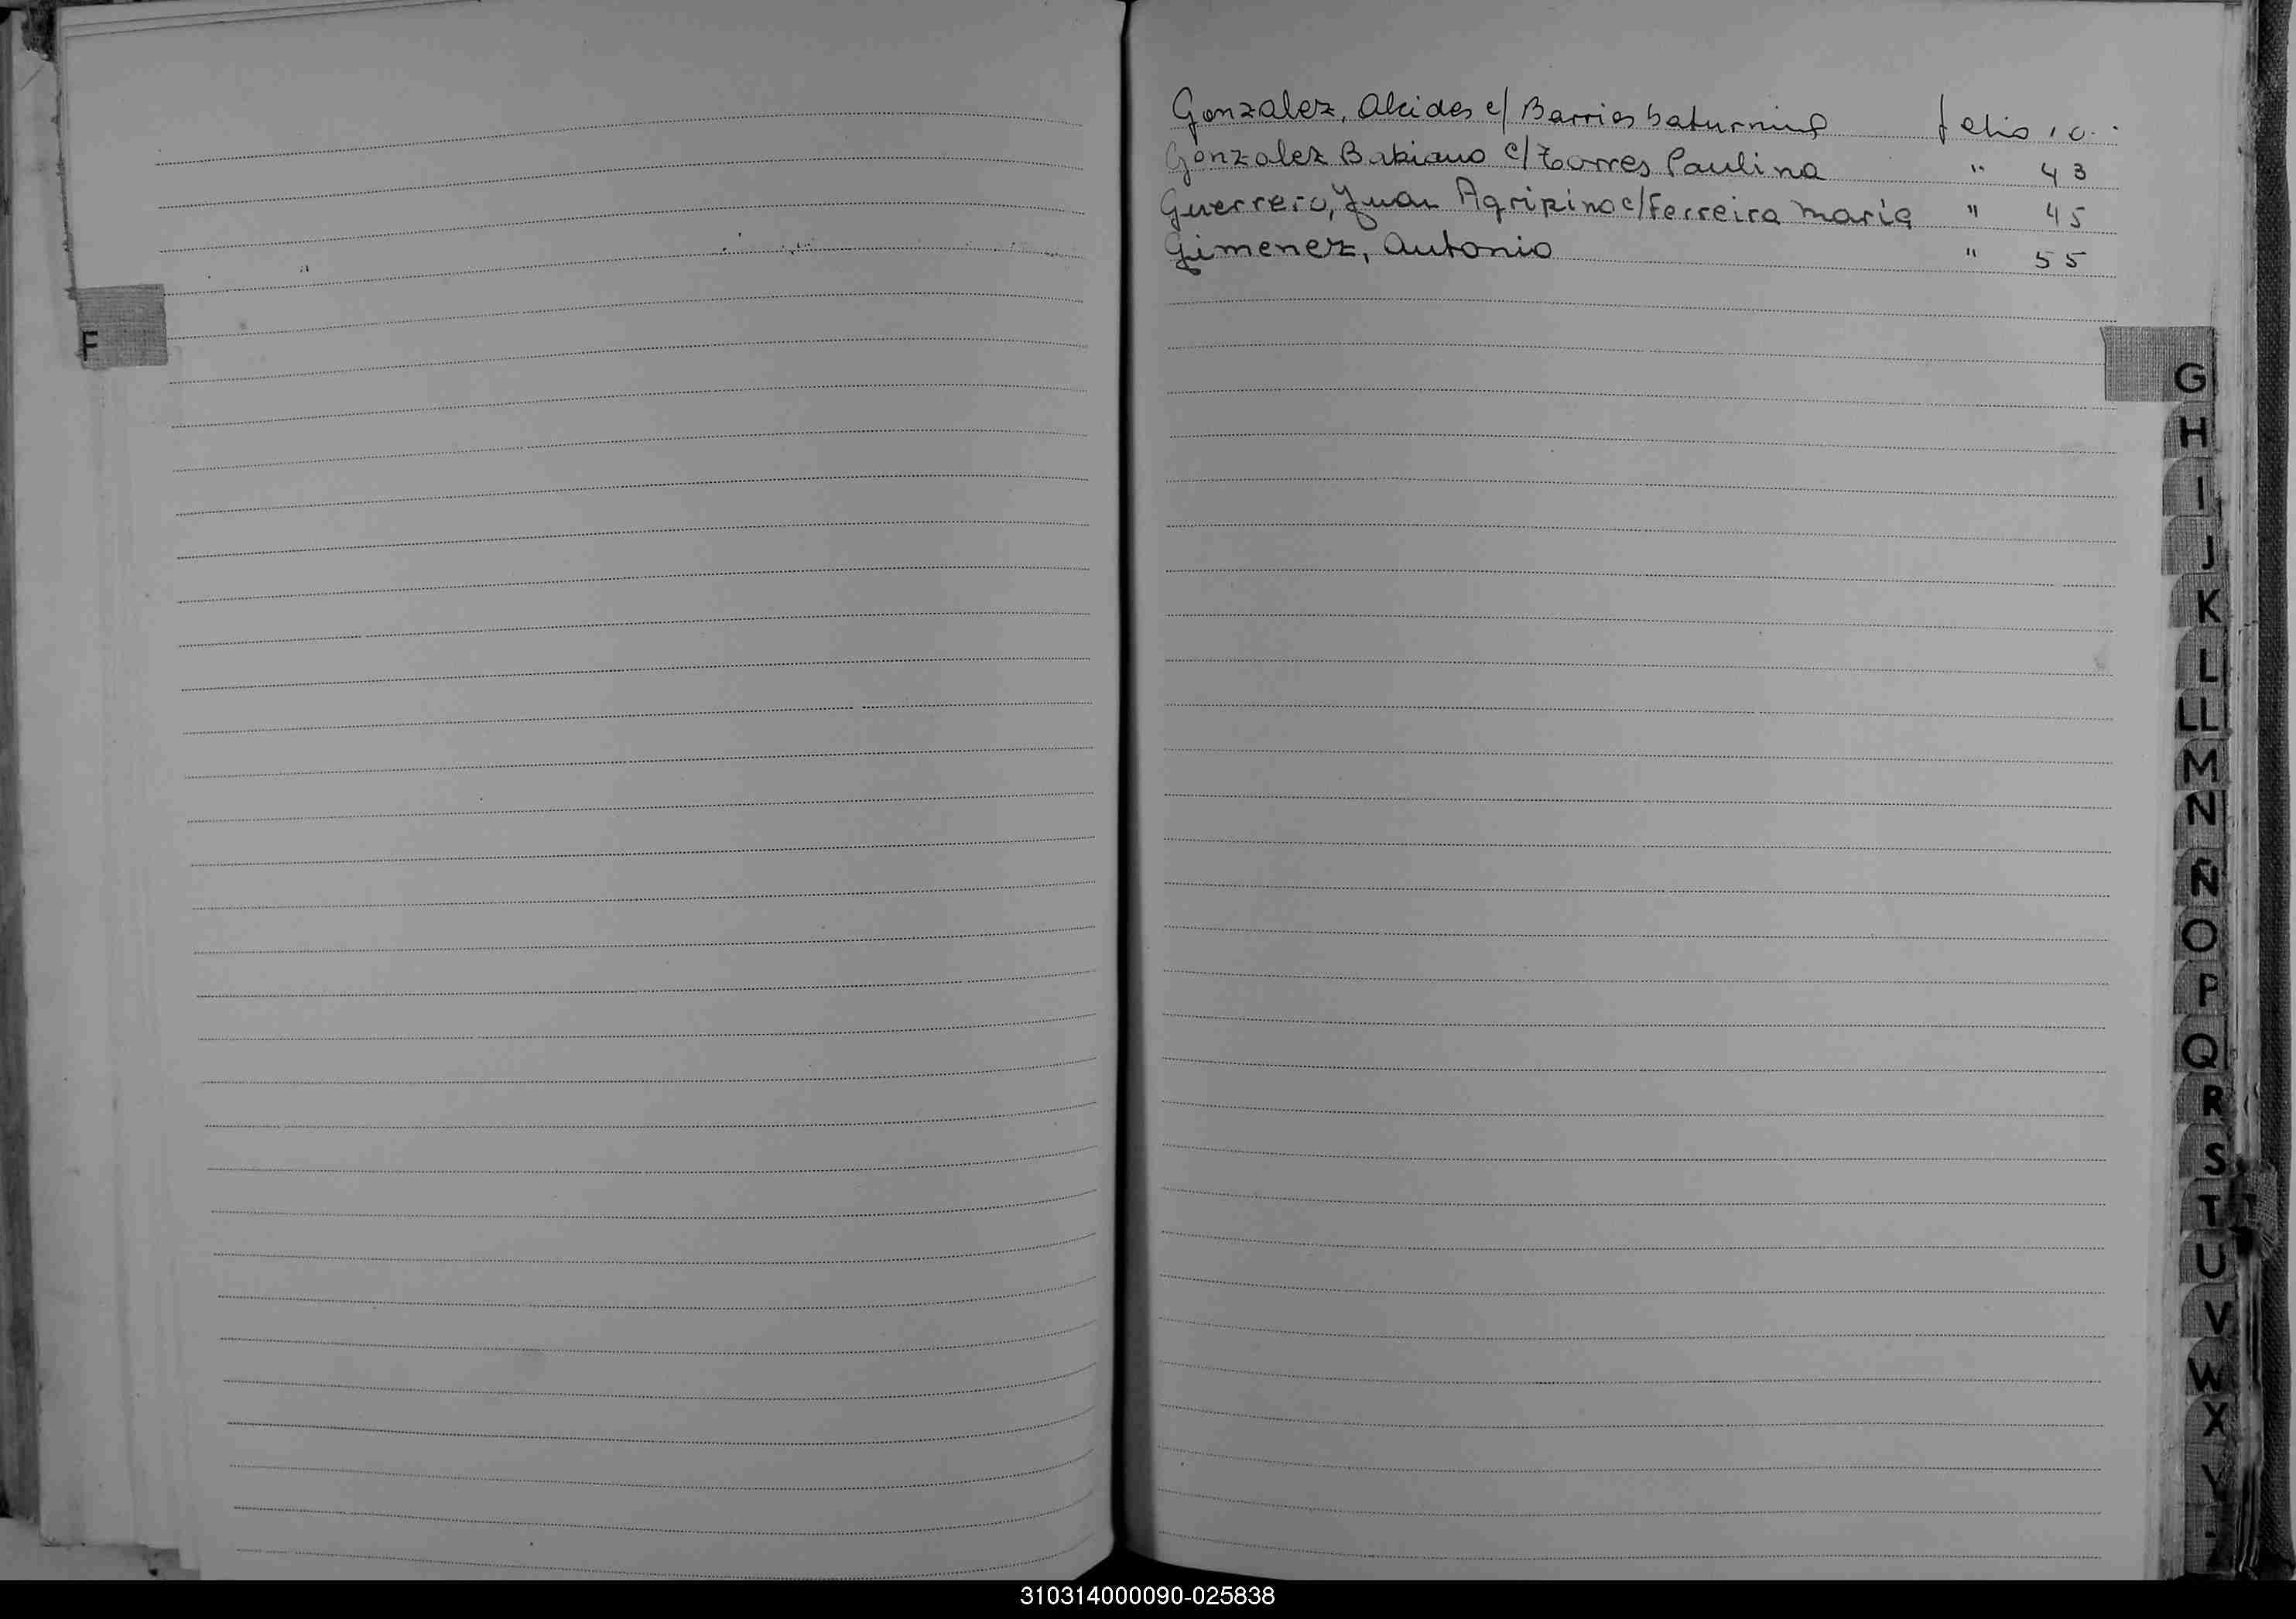 F
Gonzalez, Alcides c/ Barrios Saturnina folio
Gonzalez Babiano c/ Torres Paulina " 43
Guerrero, Juan Agripino c/ Ferreira Maria " 45
Gimenez, Antonio " 55
G
H
I
J
K
L
LL
M
N
Ñ
O
P
Q
R
S
T
U
V
W
X
Y
310314000090-025838